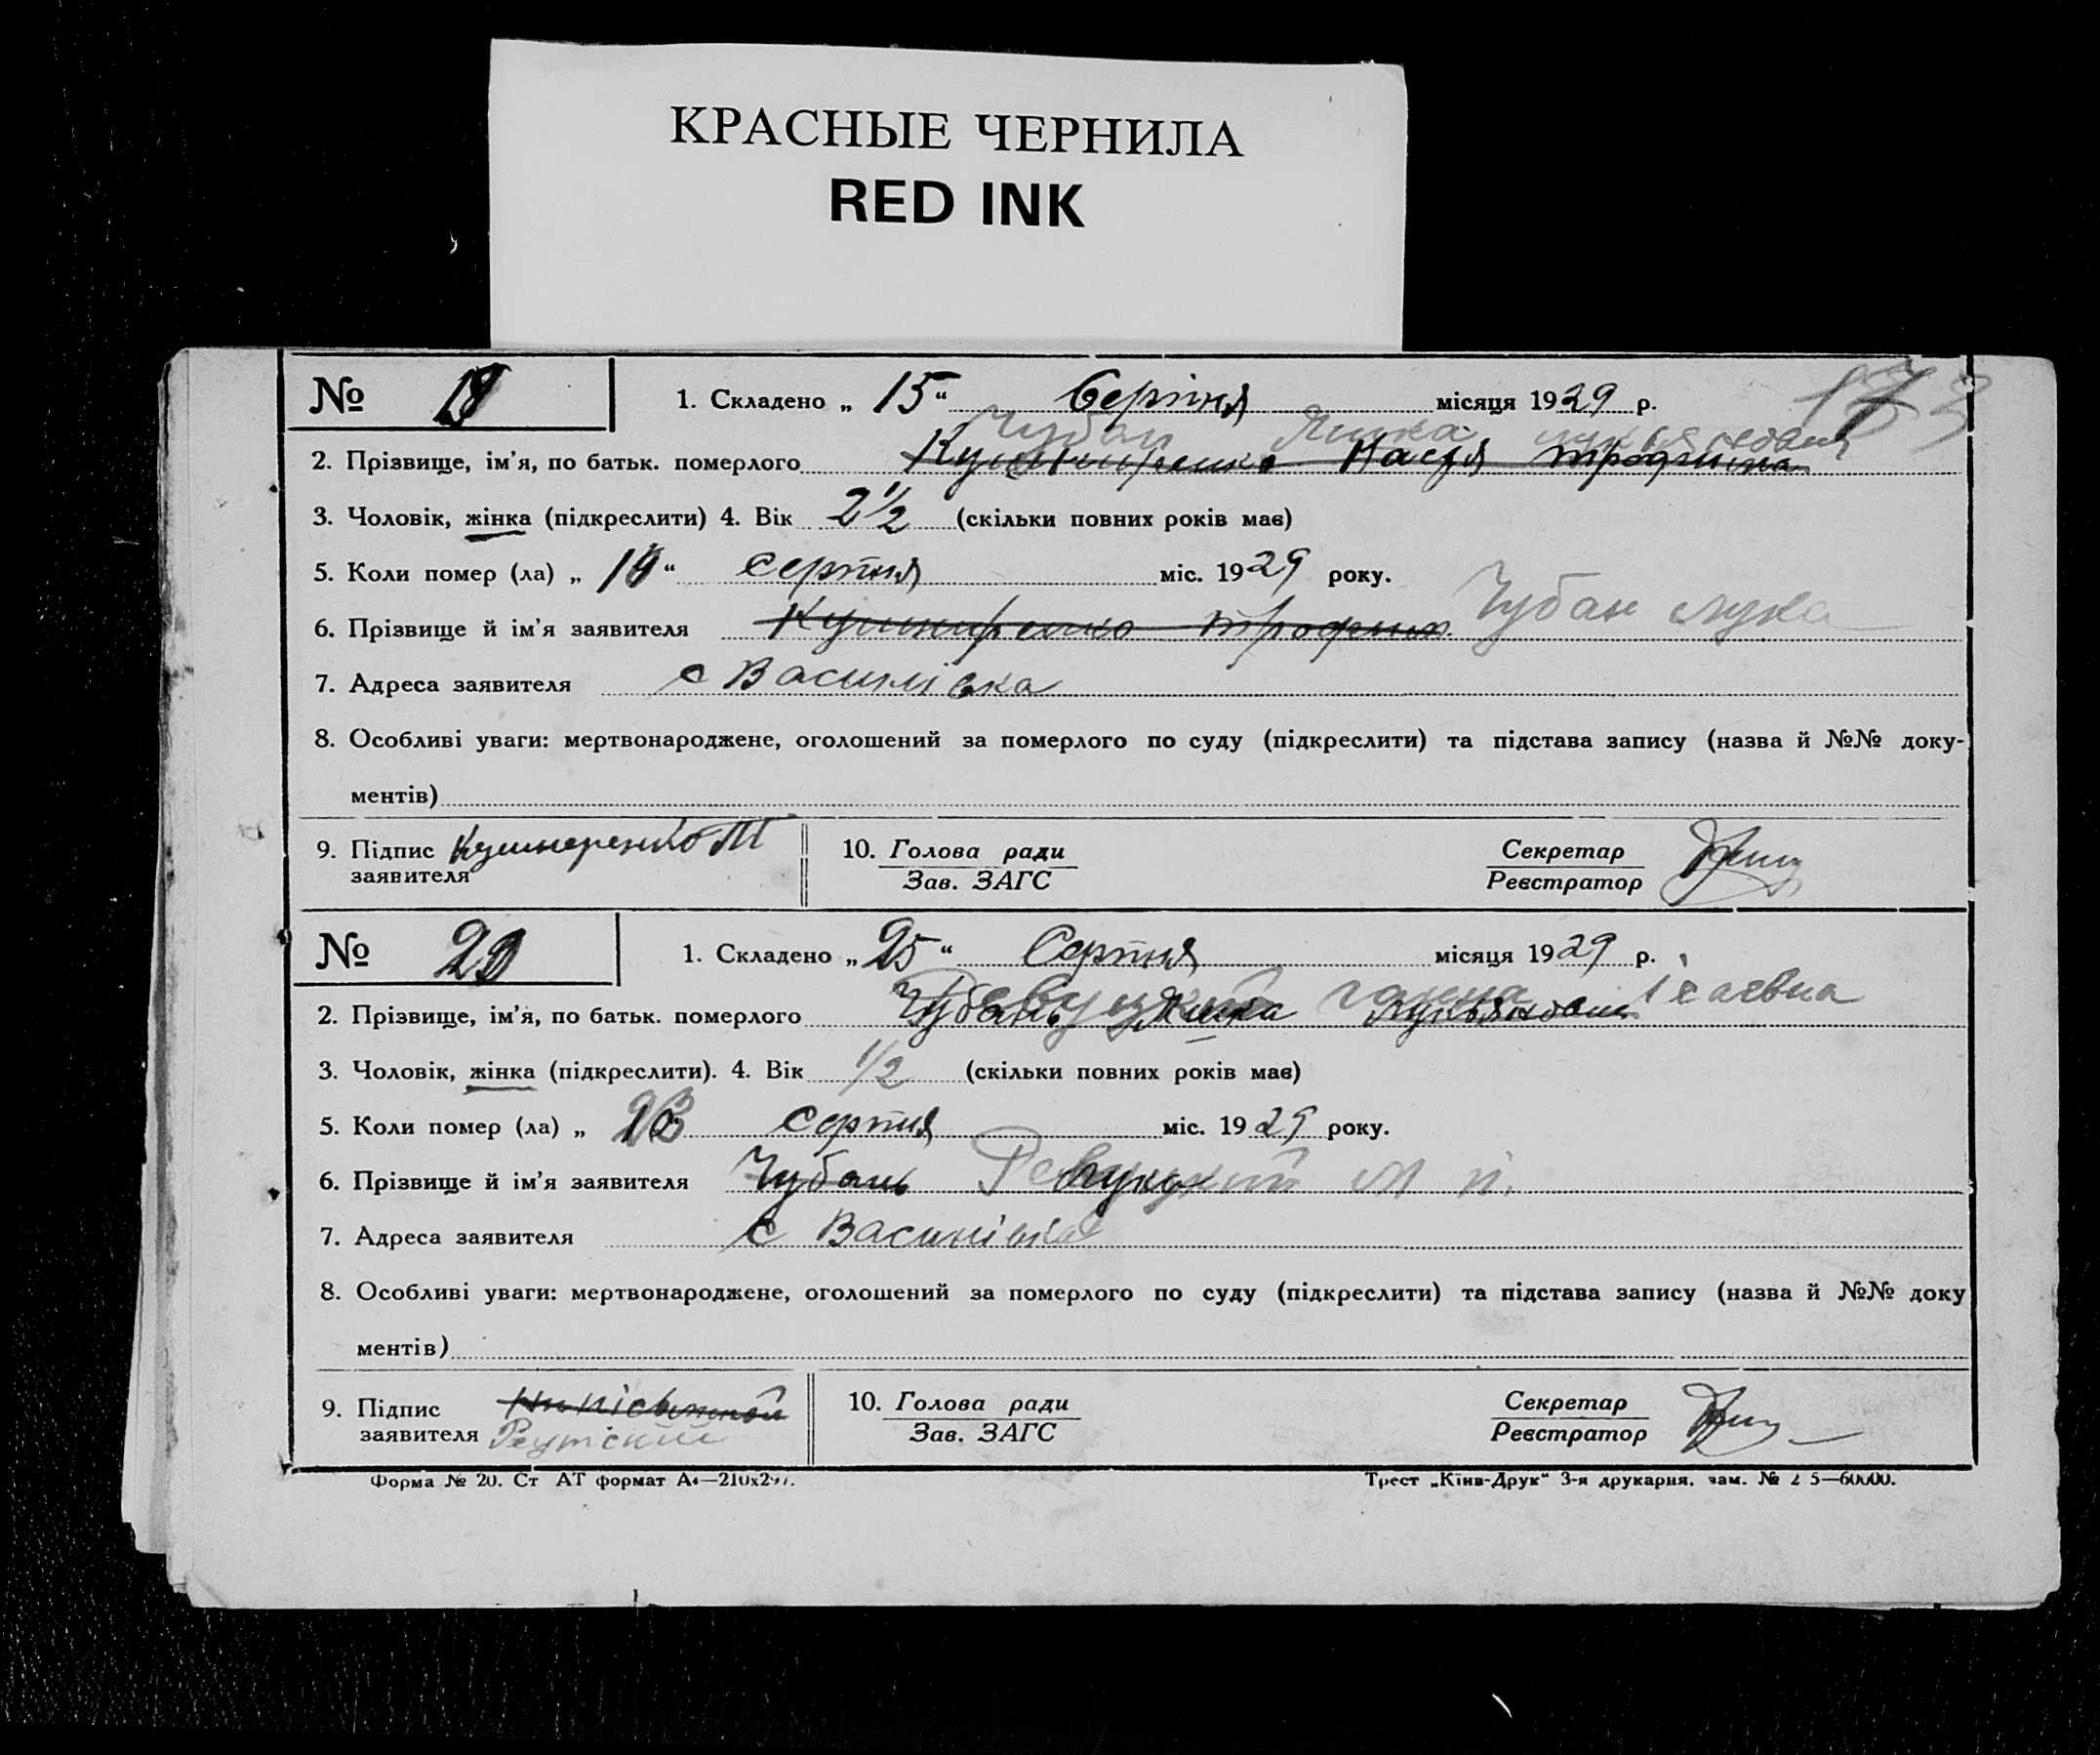 КРАСНЫЕ ЧЕРНИЛА
RED INK
№ 1. Складено „ 15 “ Серпня місяця 1929 р.
Чубан
2. Прізвище, ім'я, по батьк. померлого Кушниренко Настя
3. Чоловік, жінка (підкреслити) 4. Вік 2 1/2 (скільки повних років має)
5. Коли помер (ла) „ “ серпня міс. 1929 року.
6. Прізвище й ім'я заявителя Кушниренко Трофим Чубан Лука
7. Адреса заявителя с Василівка
8. Особливі уваги: мертвонароджене, оголошений за померлого по суду (підкреслити) та підстава запису (назва й №№ доку-
ментів)
9. Підпис заявителя Кушнеренко Т 10. Голова ради Зав. ЗАГС Секретар Реєстратор
№ 20 1. Складено „ 25 “ Серпня місяця 1929 р.
2. Прізвище, ім'я, по батьк. померлого Чубань
3. Чоловік, жінка (підкреслити). 4. Вік 1/2 (скільки повних років має)
5. Коли помер (ла) „ серпня міс. 1929 року.
6. Прізвище й ім'я заявителя Чубань
7. Адреса заявителя с Василівка
8. Особливі уваги: мертвонароджене, оголошений за померлого по суду (підкреслити) та підстава запису (назва й №№ доку
ментів)
9. Підпис заявителя 10. Голова ради Зав. ЗАГС Секретар Реєстратор
Форма № 20. Ст АТ формат А4—210х297. Трест „Київ-Друк“ 3-я друкарня, зам. №